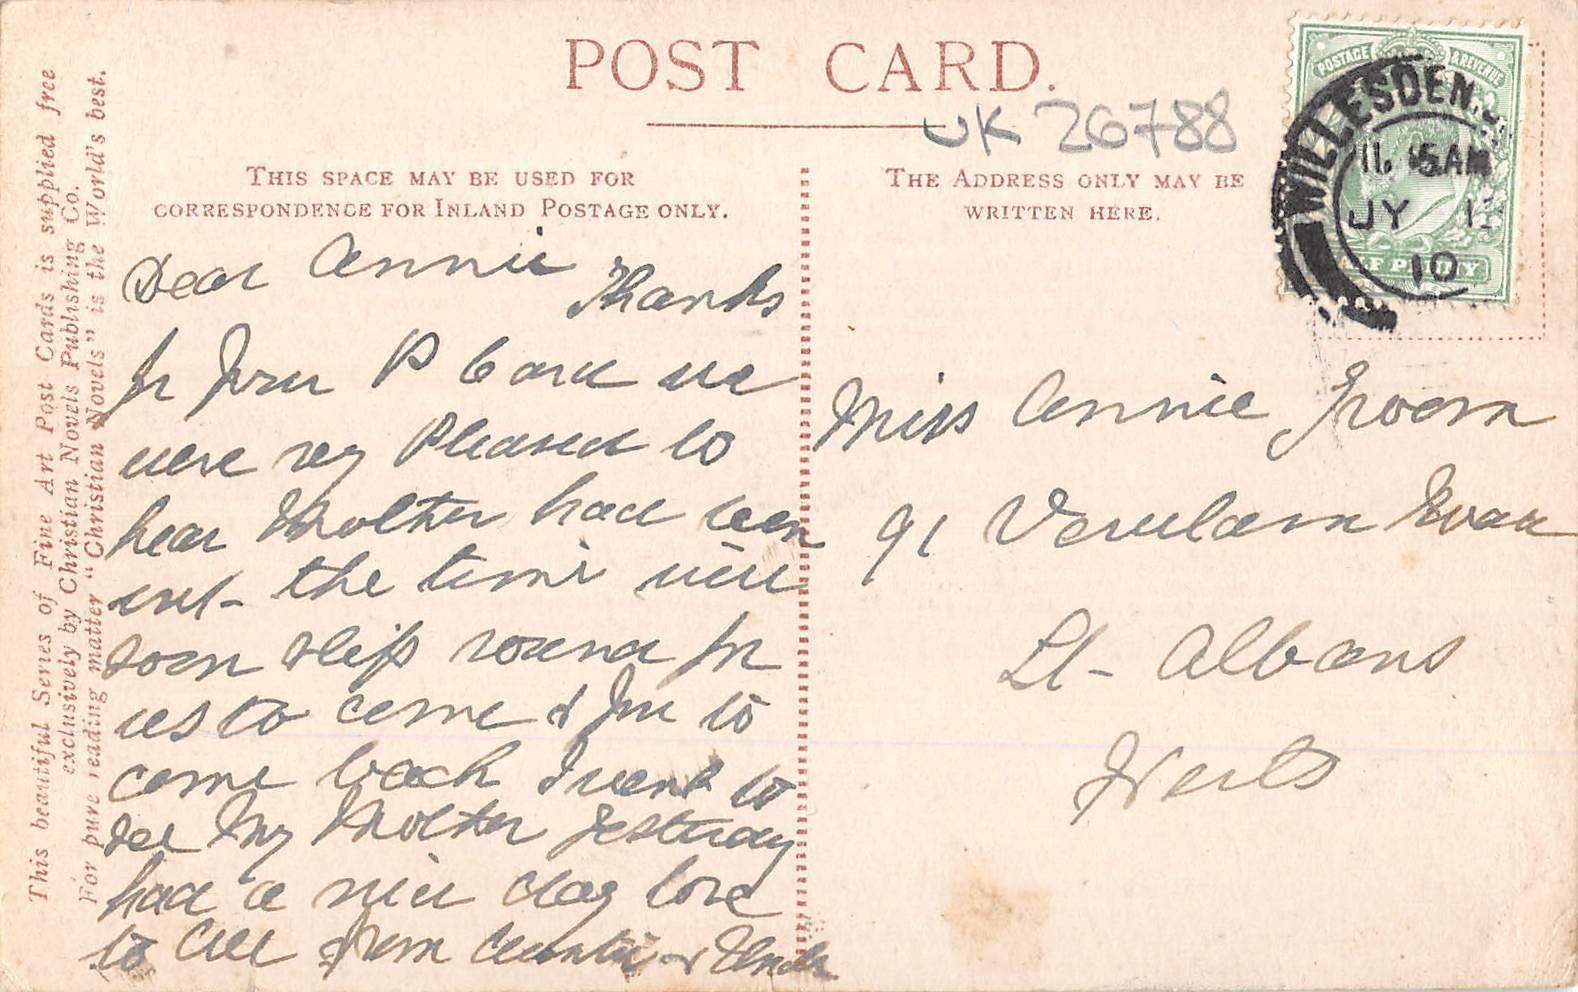 POST CARD.
UK 26788
THIS SPACE MAY BE USED FOR
CORRESPONDENCE FOR INLAND POSTAGE ONLY.
THE ADDRESS ONLY MAY BE
WRITTEN HERE.
POSTAGE & REVENUE
WILLESDEN.
JY
10
This beautiful Series of Fine Art Post Cards is supplied free
exclusively by Christian Novels Publishing Co.
For pure reading matter "Christian Novels" is the World's best.
Dear Annie Thanks
for your P Card we
were very Pleased to
hear Mother had been
out- the time will
soon slip round for
us to come & you to
come back I went to
see My Mother yesterday
had a nice day love
to all from Auntie & Uncle
Miss Annie Groom
91 Verulam Road
St- Albans
Herts